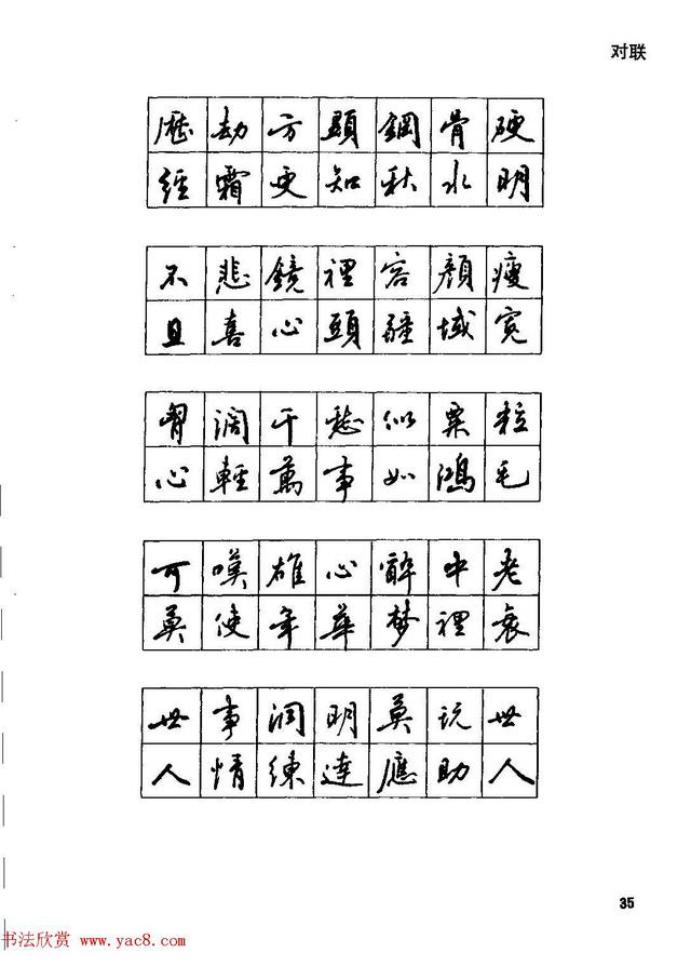 对联
歷劫方顯鋼骨硬
經霜更知秋水明
不悲鏡裡容顏瘦
且喜心頭疆域宽
胷闊千愁似粟粒
心輕萬事如鴻毛
可嘆雄心醉中老
莫使年華梦裡衰
世事洞明莫玩世
人情練達應助人
35
书法欣赏 www.yac8.com